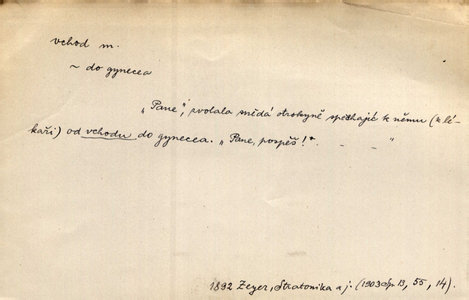 vchod m.
~ do gynecea
„Pane", zvolala snědá otrokyně spěchajíc k němu (k lé-
kaři) od vchodu do gynecea. „Pane, pospěš!" _ _ "
1892 Zeyer, Stratonika a j. (1903 Sp. 13, 55, 14).